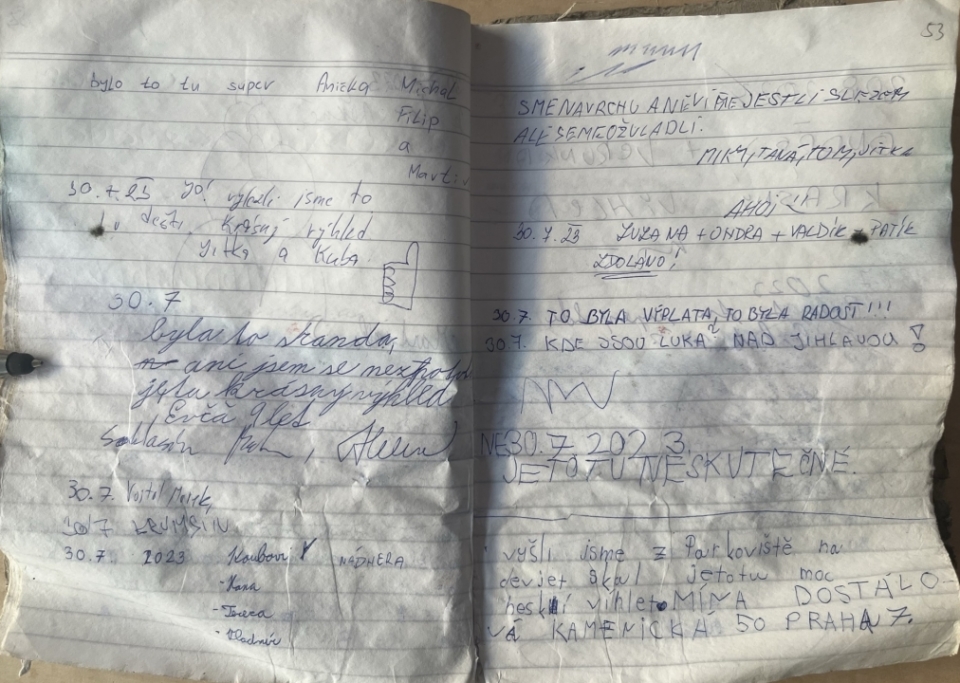 bylo to tu super Anička Michal
Filip
a
Martin
30.7.23 JO! vylezli jsme to
v dešti. Krásný výhled
Jitka a Kuba
30.7
byla to sranda,
ani jsem se
je tu krásný výhled
Evča 9let
Souhlasím
30.7. Vojta Marek,
30.7
30.7. 2023 Koubovi NÁDHERA
- Hana
53
SME NAVRCHU A NEVÍME JESTLI SLEZEM
ALE SEM TO ZVLÁDLI.
MIKY, TÁŇA, TOM, JITKA
AHOJ
30.7.23 ZUZANA + ONDRA + VALDÍK + PATÍK
ZDOLÁNO!
30.7. TO BYLA VÝPLATA, TO BYLA RADOST!!!
30.7. KDE JSOU LUKA NAD JIHLAVOU?!
NE 30.7.2023.
JETOTU NESKUTEČNÉ.
vyšli jsme z Parkoviště na
devjet skal jetotu moc
heskí víhlet. MÍNA DOSTÁLO-
VÁ KAMENICKÁ 50 PRAHA 7.